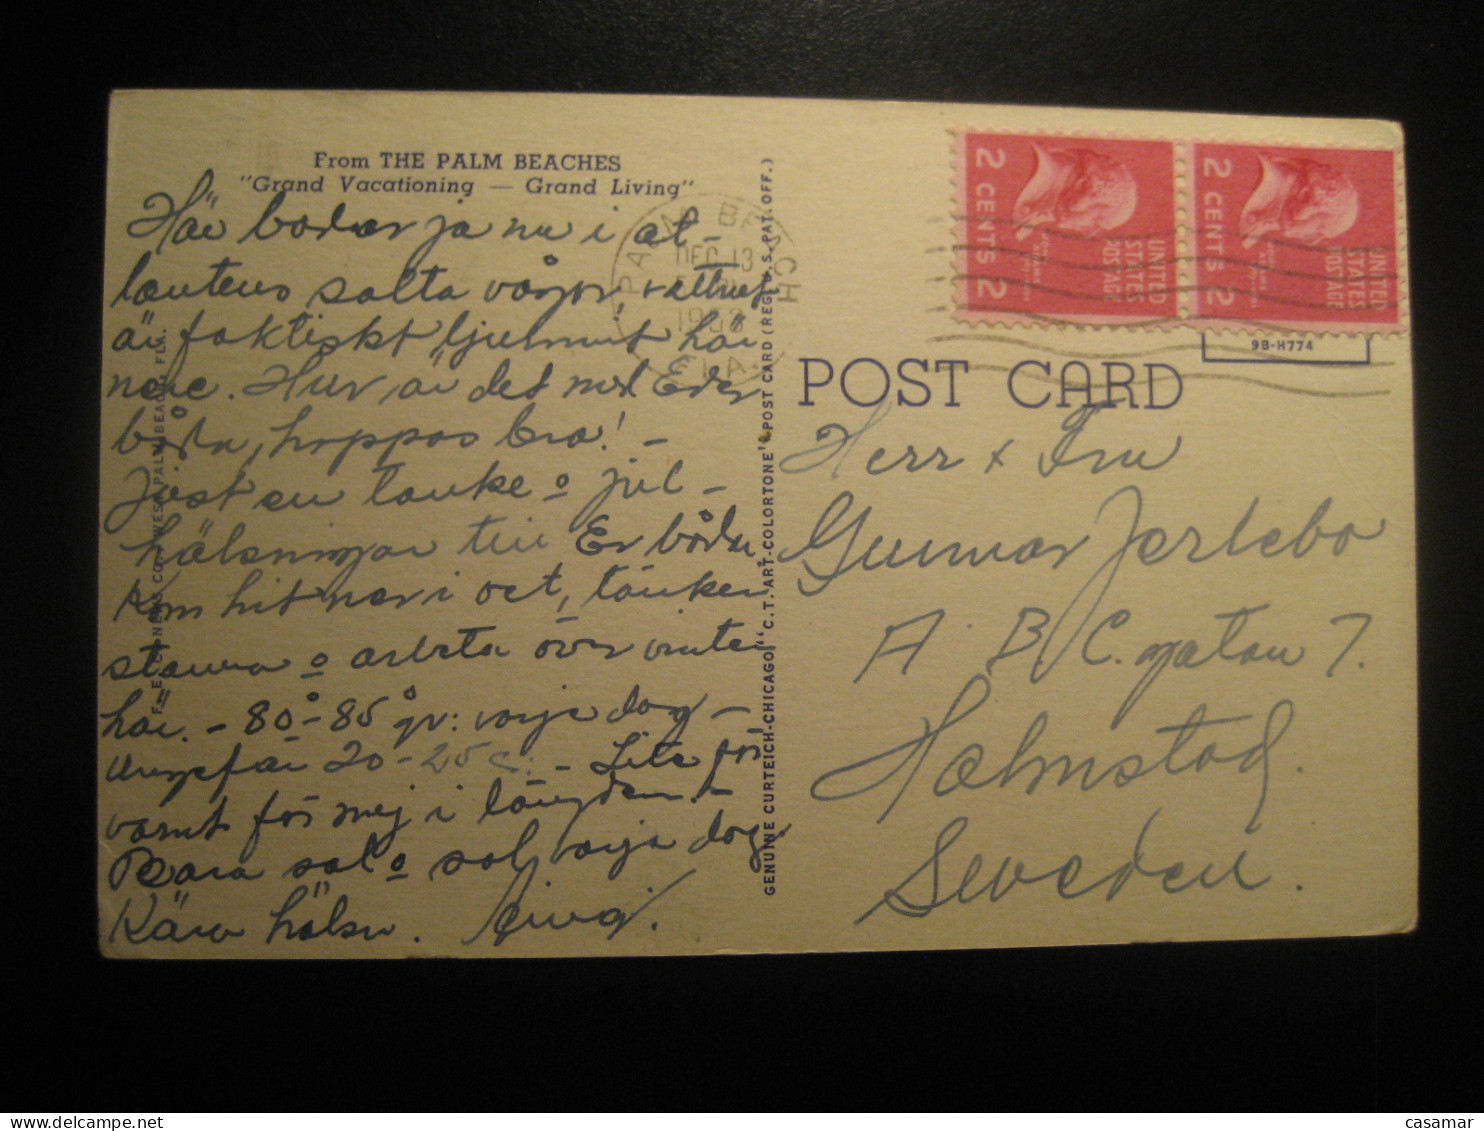 From THE PALM BEACHES
"Grand Vacationing — Grand Living"
Här badar ja nu i at-
lantens salta vågor, vattnet
är faktiskt ljummt här
nere. Hur är det med Eder
båda, hoppas bra! -
Just en tanke o jul-
hälsningar till Er båda.
Kom hit ner i oct, tänker
stanna o arbeta över vintern
här. - 80°-85° gr: varje dag -
ungefär 20-25 c. - Lite för
varmt för mej i längden. -
Bara sal o sol varje dag.
Kära hälsn.
PALM BEACH
DEC 13
FLA.
GENUINE CURTEICH-CHICAGO "C.T. ART-COLORTONE" POST CARD (REG. U.S. PAT. OFF.)
2 CENTS 2
UNITED
STATES
POSTAGE
2 CENTS 2
UNITED
STATES
POSTAGE
9B-H774
POST CARD
Herr & Fru
Gunnar Jerlebo
A.B.C. gatan 7.
Halmstad.
Sweden.
casamar
delcampe.net